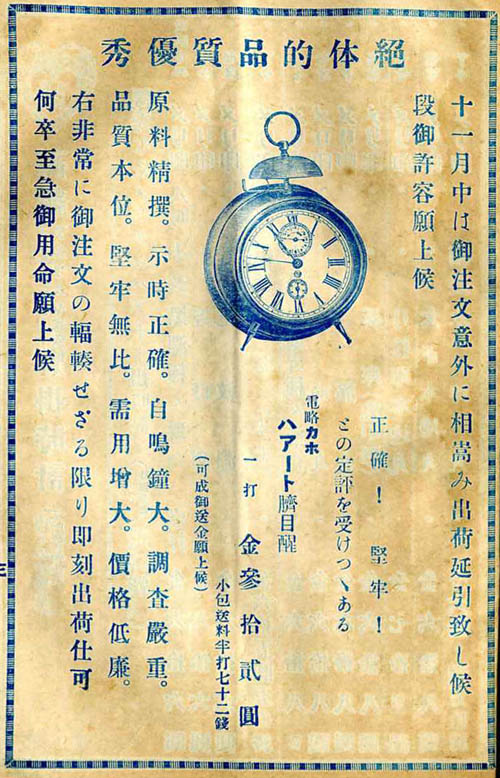 絕体的品質優秀
十一月中は御注文意外に相嵩み出荷延引致し候
段御許容願上候
正確！堅牢！
との定評を受けつゝある
電略カホ
ハアート臍目醒
一打 金參拾貳圓
小包送料半打七十二錢
（可成御送金願上候）
原料精撰。示時正確。自鳴鐘大。調査嚴重。
品質本位。堅牢無比。需用增大。價格低廉。
右非常に御注文の輻輳せざる限り即刻出荷仕可
何卒至急御用命願上候
三